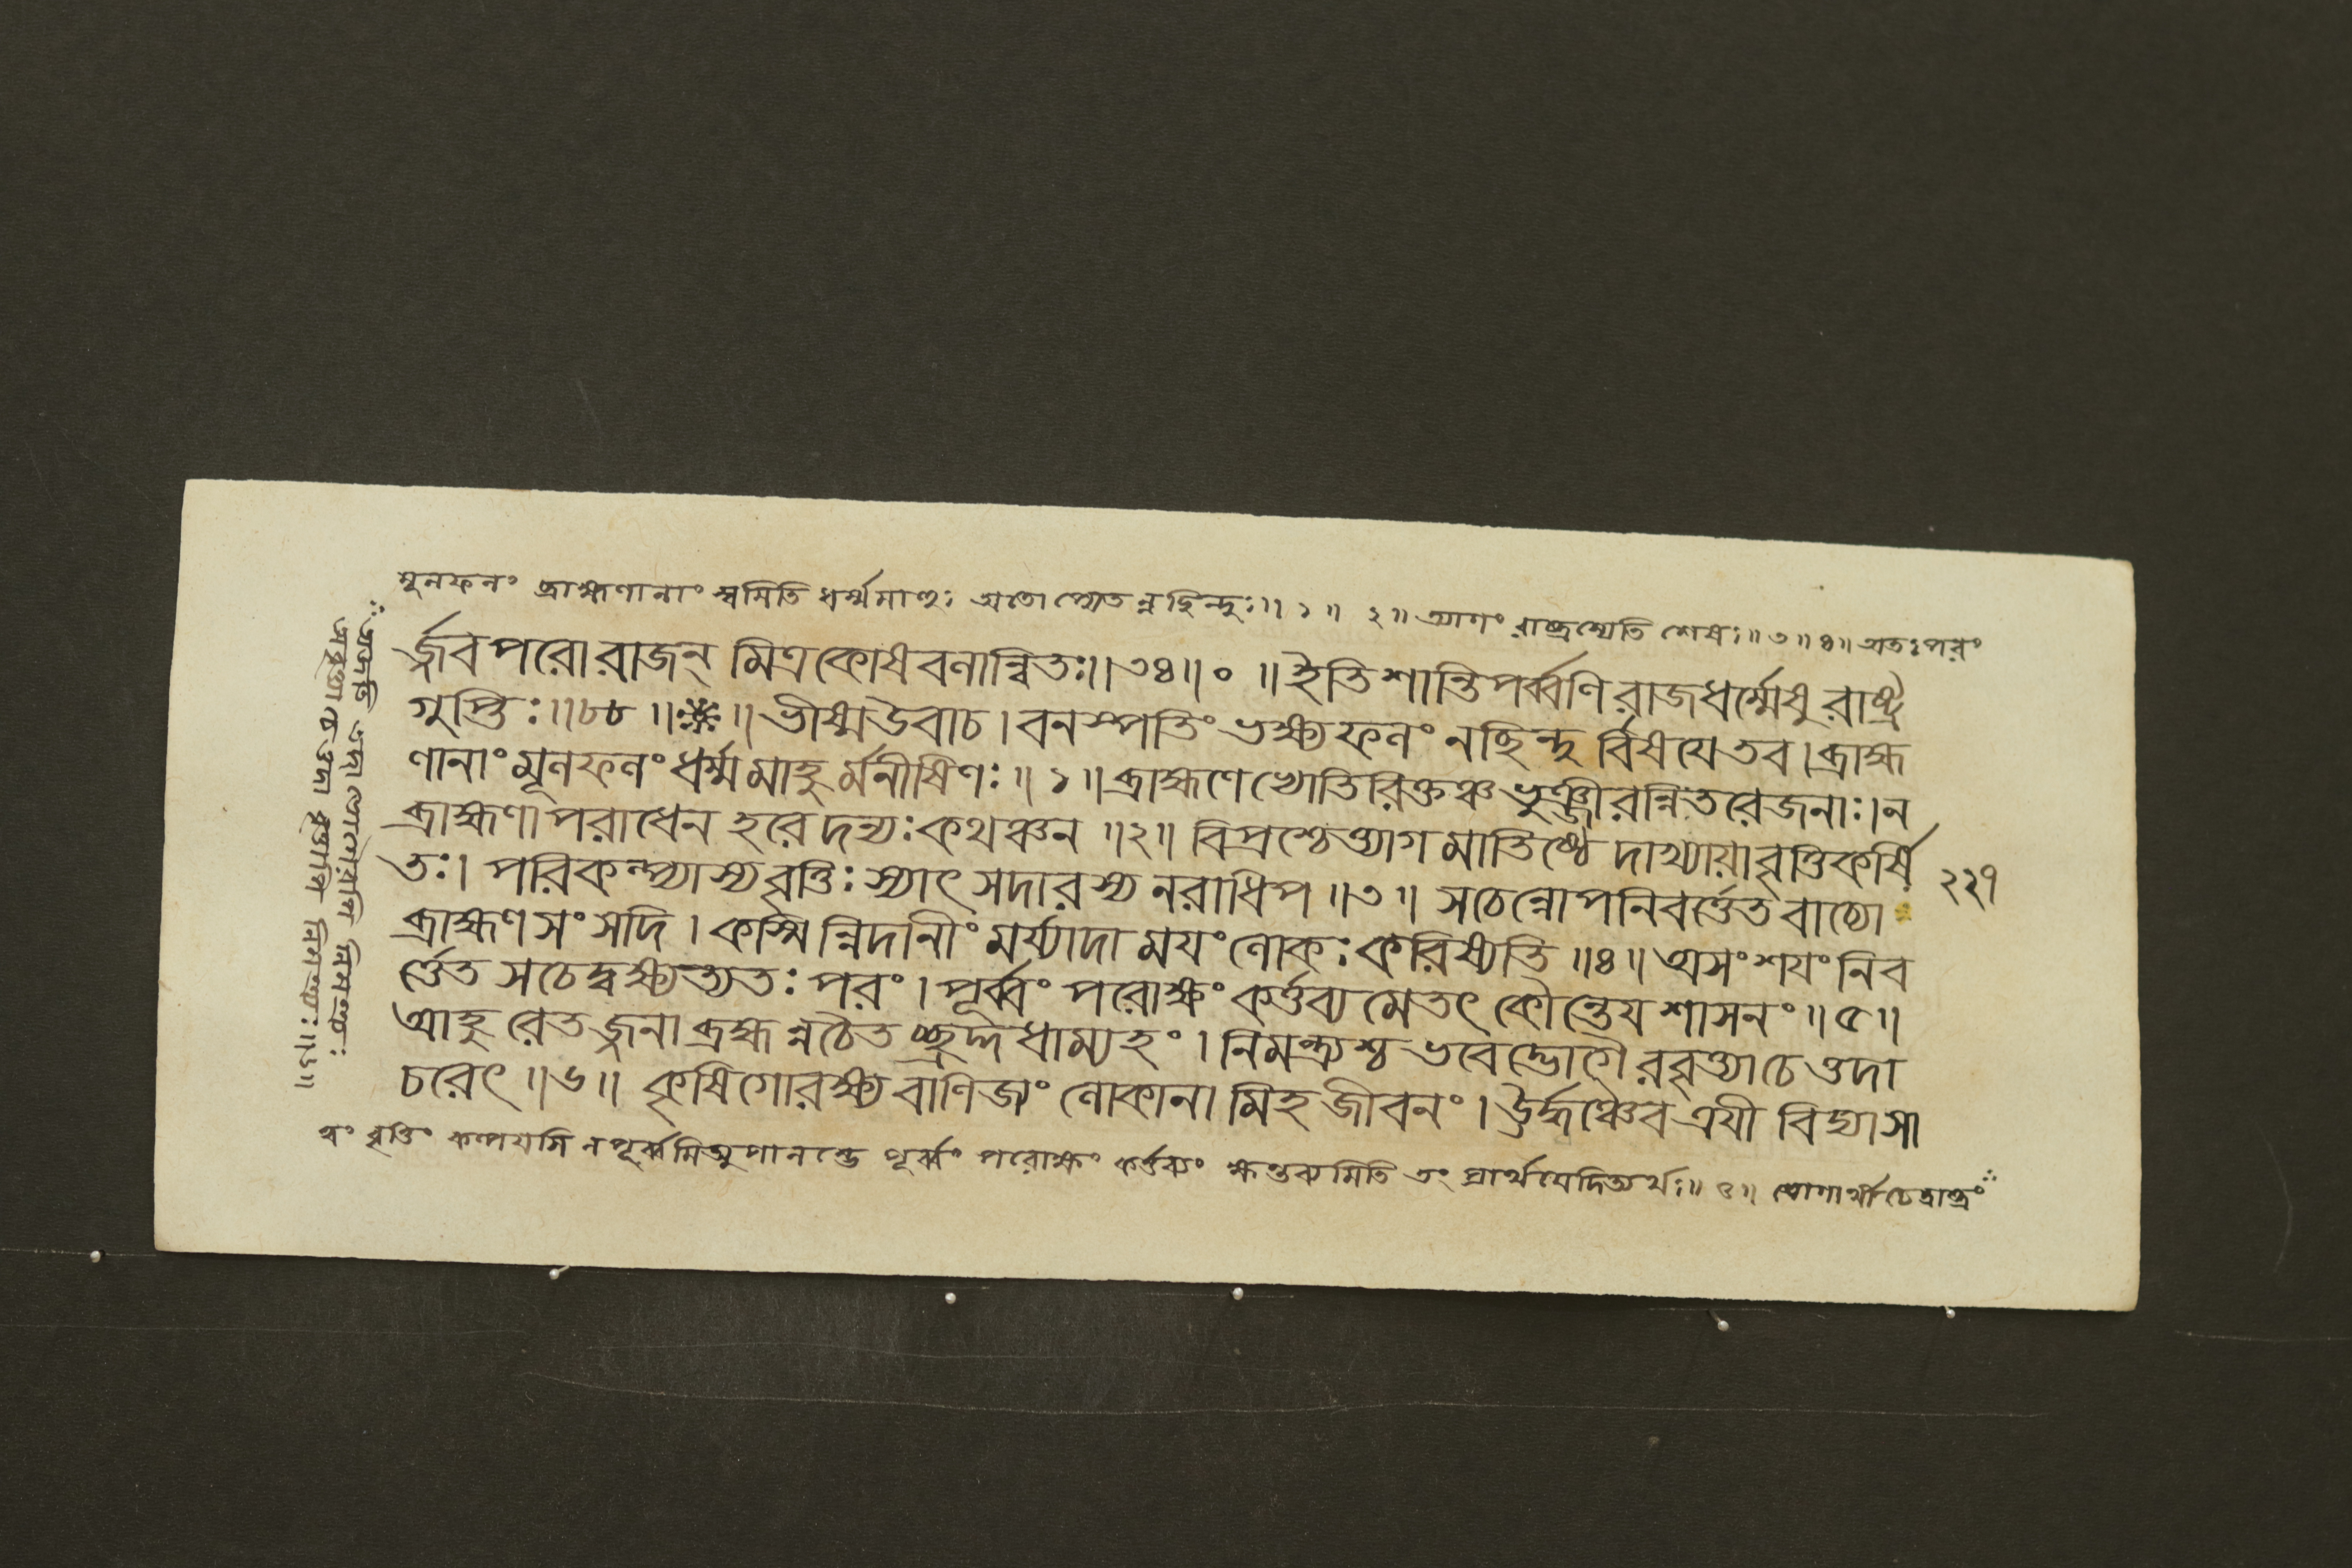 মূলফলং ব্রাহ্মণানাং স্বমিতি ধর্ম্মমাহুঃ অতো প্যেতন্নছিন্দ্যুঃ॥ ১॥ ২॥ আগং রাষ্ট্রস্যেতি শেষঃ॥ ৩॥ ৪॥ অতঃপরং
র্জ্জবপরো রাজন্ মিত্রকোষবলান্বিতঃ॥৩৪॥০॥ ইতি শান্তিপর্ব্বণি রাজধর্ম্মেষু রাষ্ট্র
গুপ্তিঃ॥৮৮॥ ॥ ভীষ্মউবাচ। বনস্পতিং ভক্ষ্যফলং নছিন্দ্যু র্বিষযে তব। ব্রাহ্ম
ণানাং মূলফলং ধর্ম্মমাহু র্মনীষিণঃ॥ ১॥ ব্রাহ্মণেভ্যোতিরিক্তঞ্চ ভুঞ্জীরন্নিতরেজনাঃ। ন
ব্রাহ্মণাপরাধেন হরেদন্যঃকথঞ্চন॥২॥ বিপ্রশ্চেত্ত্যাগমাতিষ্ঠে দাখ্যাযাবৃত্তিকর্ষি
তঃ। পরিকল্প্যাস্যবৃত্তিঃ স্যাৎ সদারস্য নরাধিপ॥৩॥ সচেন্নোপনিবর্ত্তেত বাচ্যো
২২৭
ব্রাহ্মণসংসদি। কস্মিন্নিদানীং মর্য্যাদা মযং লোকঃ করিষ্যতি॥৪॥ অসংশযং নিব
র্ত্তেত সচেদ্বক্ষ্যত্যতঃ পরং। পূর্ব্বং পরোক্ষং কর্ত্তব্য মেতৎ কৌন্তেয শাসনং॥ ৫॥
আহু রেতজ্জনা ব্রহ্মন্নচৈত চ্ছ্রদ্দধাম্যহং। নিমন্ত্র্যশ্চ ভবেদ্ভোগৈ রবৃত্ত্যাচেত্তদা
চরেৎ॥৬॥ কৃষিগোরক্ষ্যবাণিজ্যং লোকানা মিহ জীবনং। ঊর্দ্ধঞ্চৈব ত্রযী বিদ্যা সা
বৃত্তিং কল্পযসি নপূর্ব্বমিত্যুপালম্ভে পূর্ব্বং পরোক্ষং কর্ত্তব্যং ক্ষন্তব্যমিতি তং প্রার্থযেদিত্যর্থঃ॥ ৫॥ ভোগার্থী চেদ্রাষ্ট্রং
ত্যজতি তদা ভোগৈরপি নিমন্ত্র্যঃ
অবৃত্ত্যা চেত্তদা বৃত্ত্যাপি নিমন্ত্র্যঃ॥৬॥